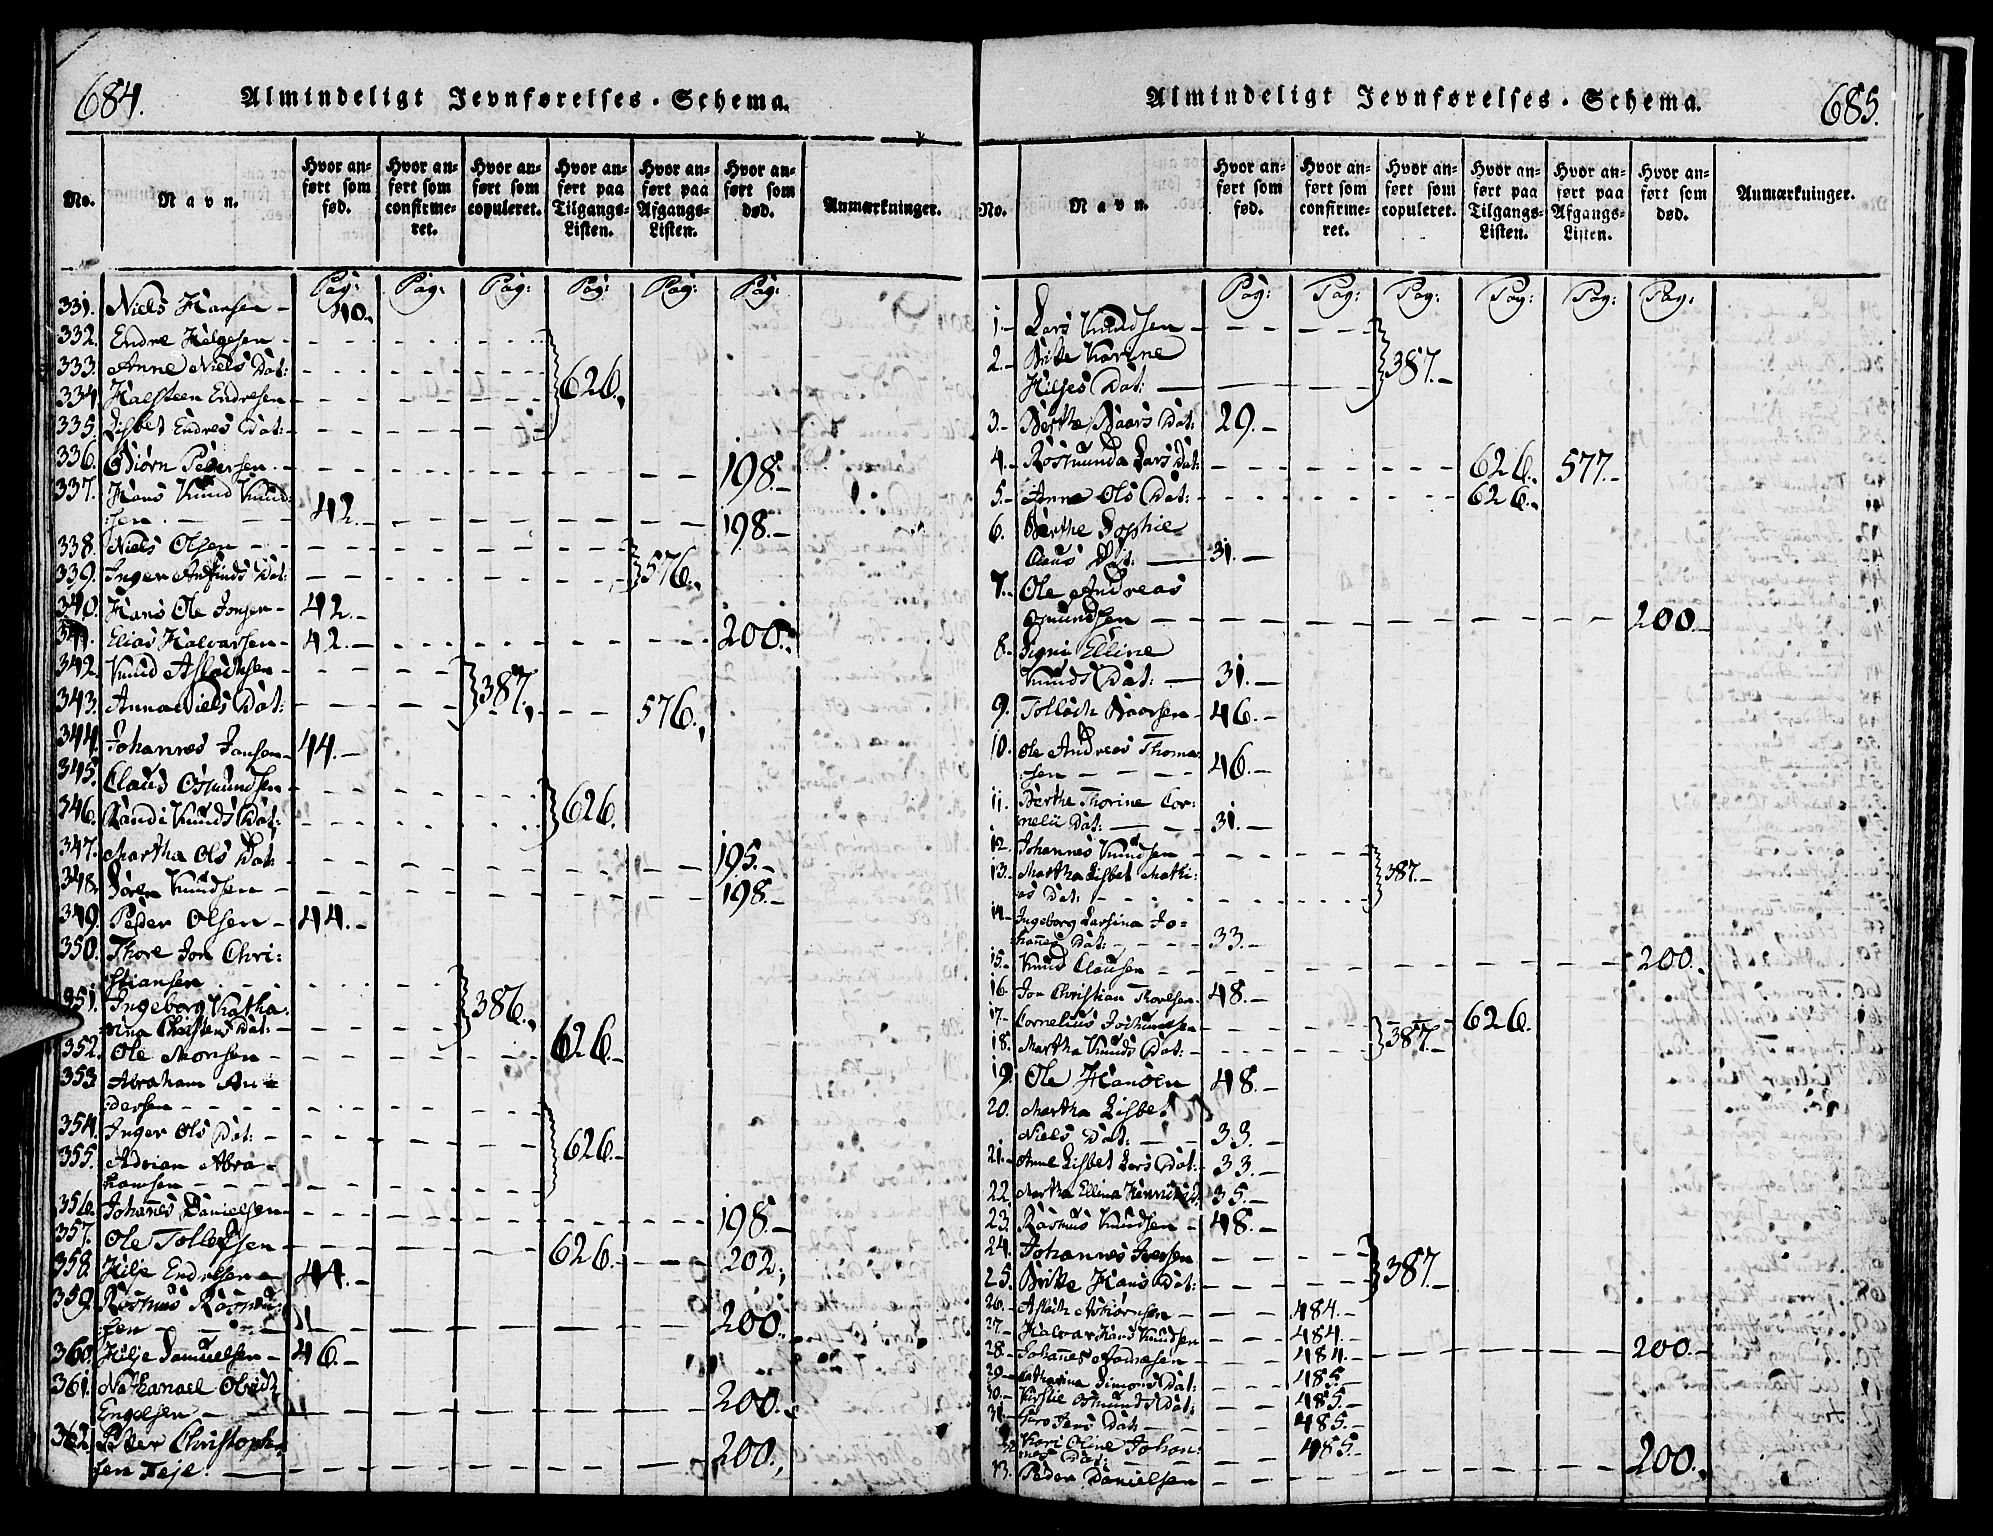 684.
Almindeligt Jevnførelses-Schema.
No. Navn. Hvor anført som fød. Hvor anført som confirmeret. Hvor anført som copuleret. Hvor anført paa Tilgangs-Listen. Hvor anført paa Afgangs-Listen. Hvor anført som død. Anmærkninger.
Pag: Pag: Pag: Pag: Pag: Pag:
331. Niels Hansen 40.
332. Endre Helgesen
333. Anne Niels Dat:
334. Halsteen Endresen 626.
335. Lisbet Endres Dat:
336. Biørn Pedersen 198.
337. Hans Knud Knud-
sen 42. 198.
338. Niels Olsen
339. Inger Anfinds Dat: 576.
340. Hans Ole Jonsen 42.
341. Elias Halvarsen 42. 200.
342. Knud Aslacksen 387.
343. Anna Niels Dat: 576.
344. Johannes Jansen 44.
345. Claus Osmundsen 626.
346. Randi Knuds Dat:
347. Martha Ols Dat: 195.
348. Søren Knudsen 198.
349. Peder Olsen 44.
350. Thore Jon Chri-
stiansen
351. Ingeborg Katha- 386.
rina Christens Dat:
352. Ole Monsen 626.
353. Abraham An-
dersen
354. Inger Ols Dat: 626.
355. Adrian Abra-
hamsen
356. Johanes Danielsen 198.
357. Ole Tollefsen 626. 202.
358. Hilje Endresen 44.
359. Rasmus Rasmu-
sen 200.
360. Hilje Samuelsen 46.
361. Nathanael
Engelsen 200.
362. Peter Christopher-
sen Feje. 200.
685.
Almindeligt Jevnførelses-Schema.
No. Navn. Hvor anført som fød. Hvor anført som confirmeret. Hvor anført som copuleret. Hvor anført paa Tilgangs-Listen. Hvor anført paa Afgangs-Listen. Hvor anført som død. Anmærkninger.
Pag: Pag: Pag: Pag: Pag: Pag:
1. Lars Knudsen
2. Britte Karine 387.
Dat:
3. Berthe Baars Dat: 29.
4. Rosmunda Lars Dat: 626. 577.
5. Anna Ols Dat: 626.
6. Berthe Sophie
Claus Dat: 31.
7. Ole Andreas
Osmundsen 200.
8. Signi Elline
Knuds Dat: 31.
9. Tollach Baarsen 46.
10. Ole Andreas Thoma-
sen 46.
11. Berthe Thorine Cor-
nelii Dat: 31.
12. Johannes Knudsen
13. Martha Lisbet Mathi- 387.
as Dat:
14. Ingeborg Larsina Jo-
hanes Dat: 33.
15. Knud Clausen 200.
16. Jon Christian Thorsen 48.
17. Cornelius Jochumsen 626.
387.
18. Martha Knuds Dat:
19. Ole Hansen 48.
20. Martha Lisbet
Niels Dat: 33.
21. Anne Lisbet Lars Dat: 33.
22. Martha Ellina 35.
23. Rasmus Knudsen 48.
24. Johannes Iversen 387.
25. Britte Hans Dat:
26. Aslach Asbiørnsen 484.
27. Halvar Hans Knudsen 484.
28. Johanes Andreasen 484. 200.
29. Catharina Simons Dat: 485.
30. Kirstie Osmunds Dat: 485.
31. Jens Dat: 485.
32. Kari Oline Johan- 485.
nes Dat:
33. Peder Danielsen 200.